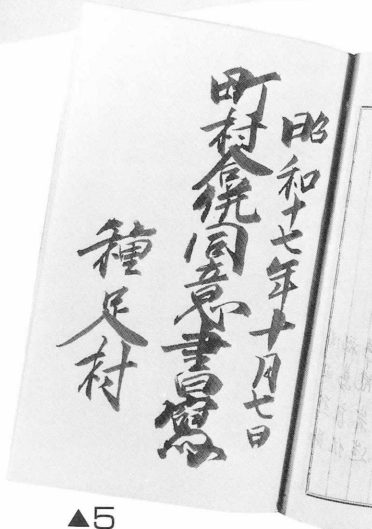 昭和十七年十月七日
町村合併同意書寫
種足村
▲5